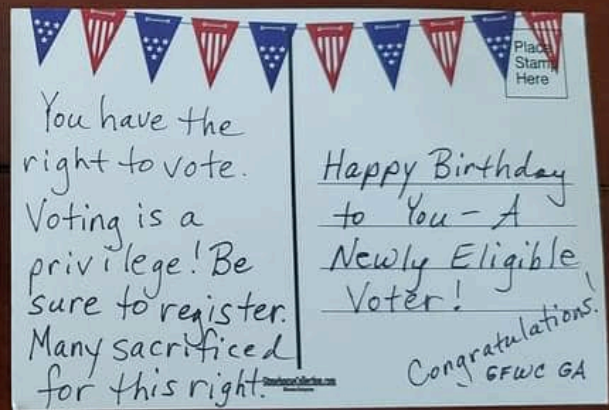 Place
Stamp
Here
You have the
right to vote.
Voting is a
privilege! Be
sure to register.
Many sacrificed
for this right.
Happy Birthday
to You - A
Newly Eligible
Voter!
Congratulations!
GFWC GA